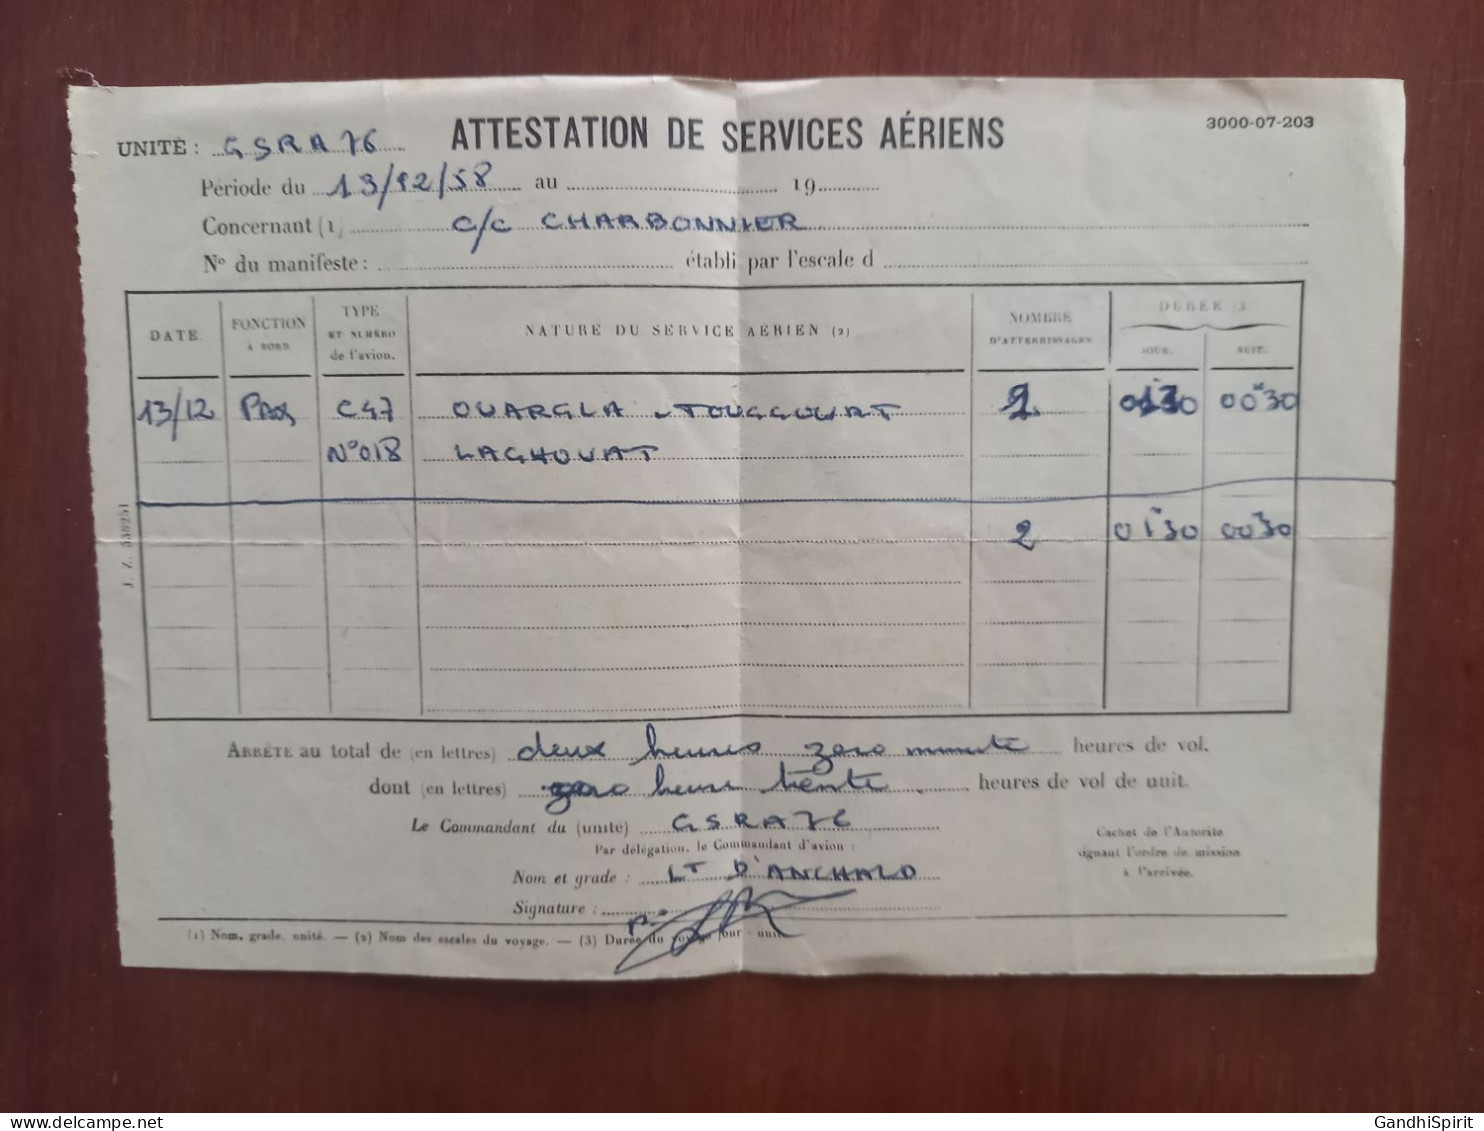 ATTESTATION DE SERVICES AÉRIENS
3000-07-203
UNITÉ : GSRA 76
Période du 13/12/58 au 19
Concernant (1) C/C CHARBONNIER
N° du manifeste : établi par l'escale d
DATE. FONCTION À BORD TYPE ET NUMÉRO de l'avion. NATURE DU SERVICE AÉRIEN (2) NOMBRE D'ATTERRISSAGES DURÉE (3) JOUR. NUIT.
13/12 PAX C47 OUARGLA - TOUGGOURT 2 01 30 00 30
N°018 LAGHOUAT
2 01 30 00 30
J. Z. 538251
ARRÊTÉ au total de (en lettres) deux heures zero minute heures de vol.
dont (en lettres) zero heure trente heures de vol de nuit.
Le Commandant du (unité) GSRA 76
Par délégation, le Commandant d'avion :
Nom et grade : LT D'ANCHALD
Signature :
Cachet de l'Autorité
signant l'ordre de mission
à l'arrivée.
(1) Nom, grade, unité. — (2) Nom des escales du voyage. — (3) Durée du voyage jour - nuit.
GandhiSpirit